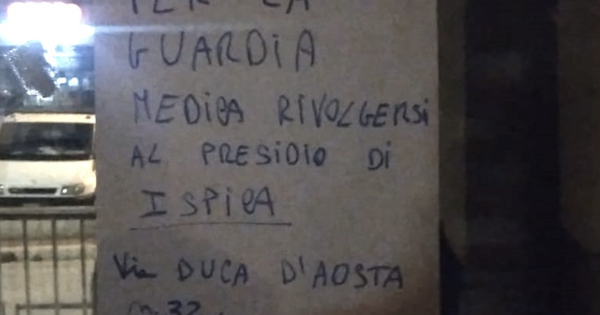 PER LA
GUARDIA
MEDICA RIVOLGERSI
AL PRESIDIO DI
ISPICA
Via DUCA D'AOSTA
n. 32.